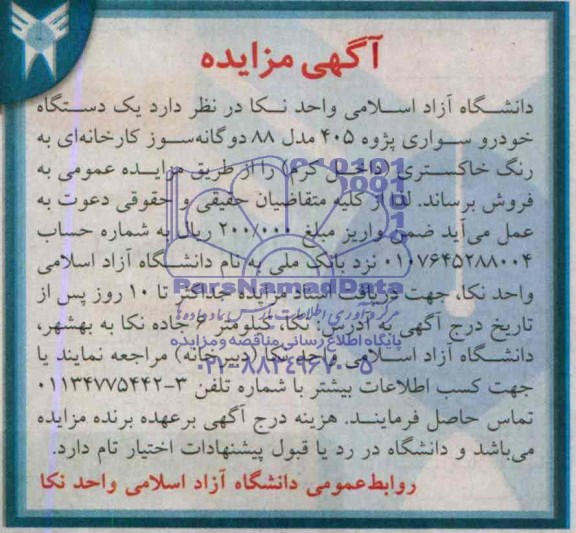 آگهی مزایده
دانشگاه آزاد اسلامی واحد نکا در نظر دارد یک دستگاه
خودرو سواری پژوه ۴۰۵ مدل ۸۸ دوگانه‌سوز کارخانه‌ای به
رنگ خاکستری (داخل کرم) را از طریق مزایده عمومی به
فروش برساند. لذا از کلیه متقاضیان حقیقی و حقوقی دعوت به
عمل می‌آید ضمن واریز مبلغ ۲۰۰/۰۰۰ ریال به شماره حساب
۰۱۰۷۶۴۵۲۸۸۰۰۴ نزد بانک ملی به نام دانشگاه آزاد اسلامی
ParsNamadData
واحد نکا، جهت دریافت اسناد مزایده حداکثر تا ۱۰ روز پس از
مرکز فرآوری اطلاعات پارس نماد داده‌ها
تاریخ درج آگهی به آدرس: نکا، کیلومتر ۶ جاده نکا به بهشهر،
پایگاه اطلاع رسانی مناقصه و مزایده
دانشگاه آزاد اسلامی واحد نکا (دبیرخانه) مراجعه نمایند یا
۰۲۱-۸۸۳۴۹۶۷۰-۵
جهت کسب اطلاعات بیشتر با شماره تلفن ۳-۰۱۱۳۴۷۷۵۴۴۲
تماس حاصل فرمایند. هزینه درج آگهی برعهده برنده مزایده
می‌باشد و دانشگاه در رد یا قبول پیشنهادات اختیار تام دارد.
روابط عمومی دانشگاه آزاد اسلامی واحد نکا